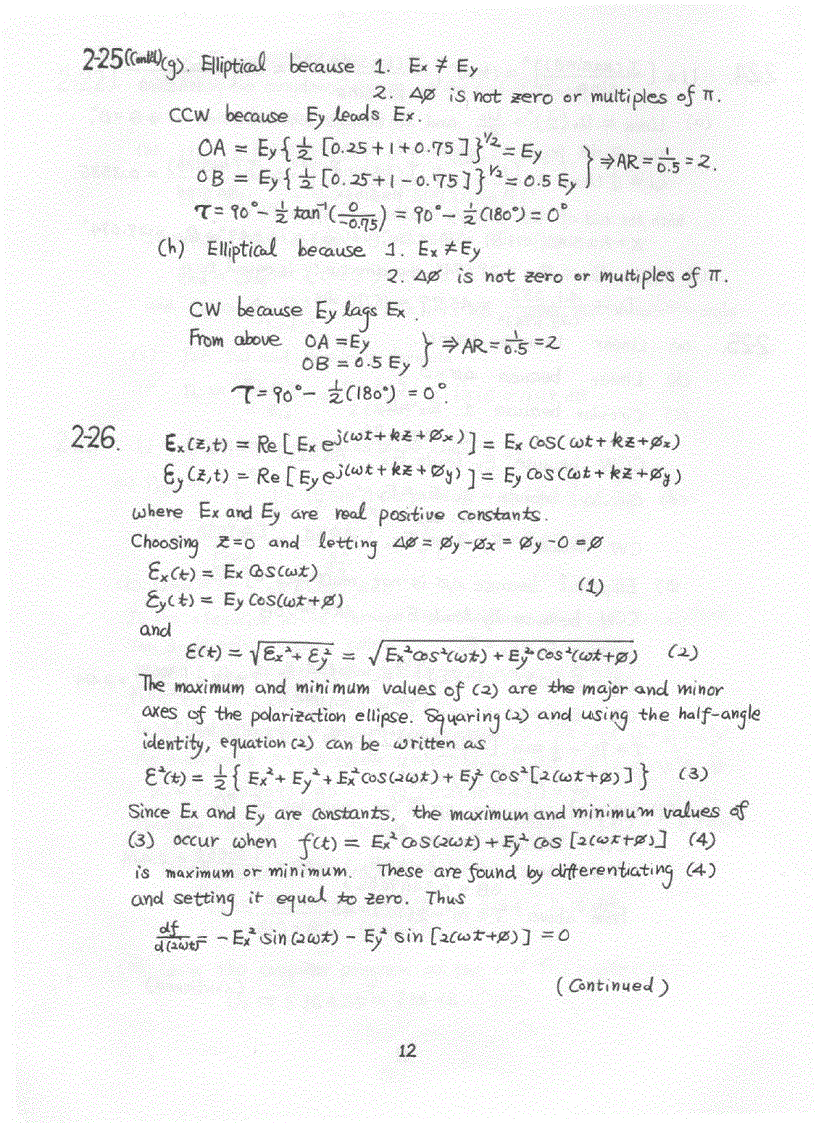 2-25 (Cont'd) (g). Elliptical because 1. Ex ≠ Ey
2. Δø is not zero or multiples of π.
CCW because Ey leads Ex.
OA = Ey{ 1/2 [0.25+1+0.75] }^1/2 = Ey
OB = Ey{ 1/2 [0.25+1-0.75] }^1/2 = 0.5 Ey } ⇒ AR = 1/0.5 = 2.
τ = 90° - 1/2 tan⁻¹(0/-0.75) = 90° - 1/2 (180°) = 0°
(h) Elliptical because 1. Ex ≠ Ey
2. Δø is not zero or multiples of π.
CW because Ey lags Ex.
From above OA = Ey
OB = 0.5 Ey } ⇒ AR = 1/0.5 = 2
τ = 90° - 1/2 (180°) = 0°.
2-26. Ɛx(z,t) = Re [Ex e^j(ωt+kz+øx)] = Ex cos(ωt+kz+øx)
Ɛy(z,t) = Re [Ey e^j(ωt+kz+øy)] = Ey cos(ωt+kz+øy)
where Ex and Ey are real positive constants.
Choosing z=0 and letting Δø = øy-øx = øy-0 = ø
Ɛx(t) = Ex cos(ωt)
Ɛy(t) = Ey cos(ωt+ø) (1)
and
Ɛ(t) = √(Ɛx²+Ɛy²) = √(Ex² cos²(ωt) + Ey² cos²(ωt+ø)) (2)
The maximum and minimum values of (2) are the major and minor
axes of the polarization ellipse. Squaring (2) and using the half-angle
identity, equation (2) can be written as
Ɛ²(t) = 1/2 { Ex²+ Ey²+ Ex² cos(2ωt) + Ey² cos²[2(ωt+ø)] } (3)
Since Ex and Ey are constants, the maximum and minimum values of
(3) occur when f(t) = Ex² cos(2ωt) + Ey² cos [2(ωt+ø)] (4)
is maximum or minimum. These are found by differentiating (4)
and setting it equal to zero. Thus
df/d(2ωt) = -Ex² sin(2ωt) - Ey² sin [2(ωt+ø)] = 0
(Continued)
12